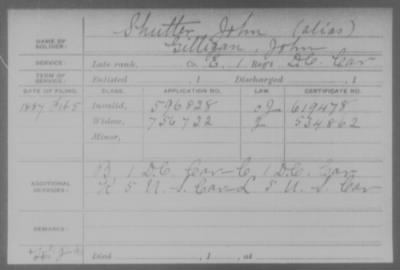 NAME OF SOLDIER: Shutter, John (alias)
Gilligan, John
SERVICE: Late rank, Co. E, 1 Reg't D.C. Cav
TERM OF SERVICE: Enlisted , 1 Discharged , 1
DATE OF FILING. CLASS. APPLICATION NO. LAW. CERTIFICATE NO.
1887 Feb 5 Invalid, 596828 619478
Widow, 756732 534862
Minor,
ADDITIONAL SERVICES: B 1 D.C. Cav C 1 D.C. Cav
K 5 U.S. Cav L 5 U.S. Cav
REMARKS:
Died , 1 , at